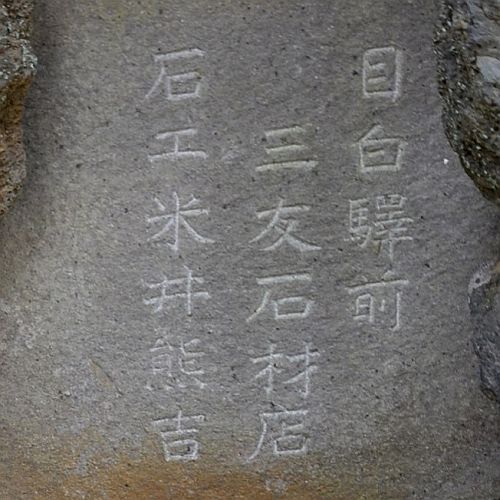 目白驛前
三友石材店
石工米井熊吉